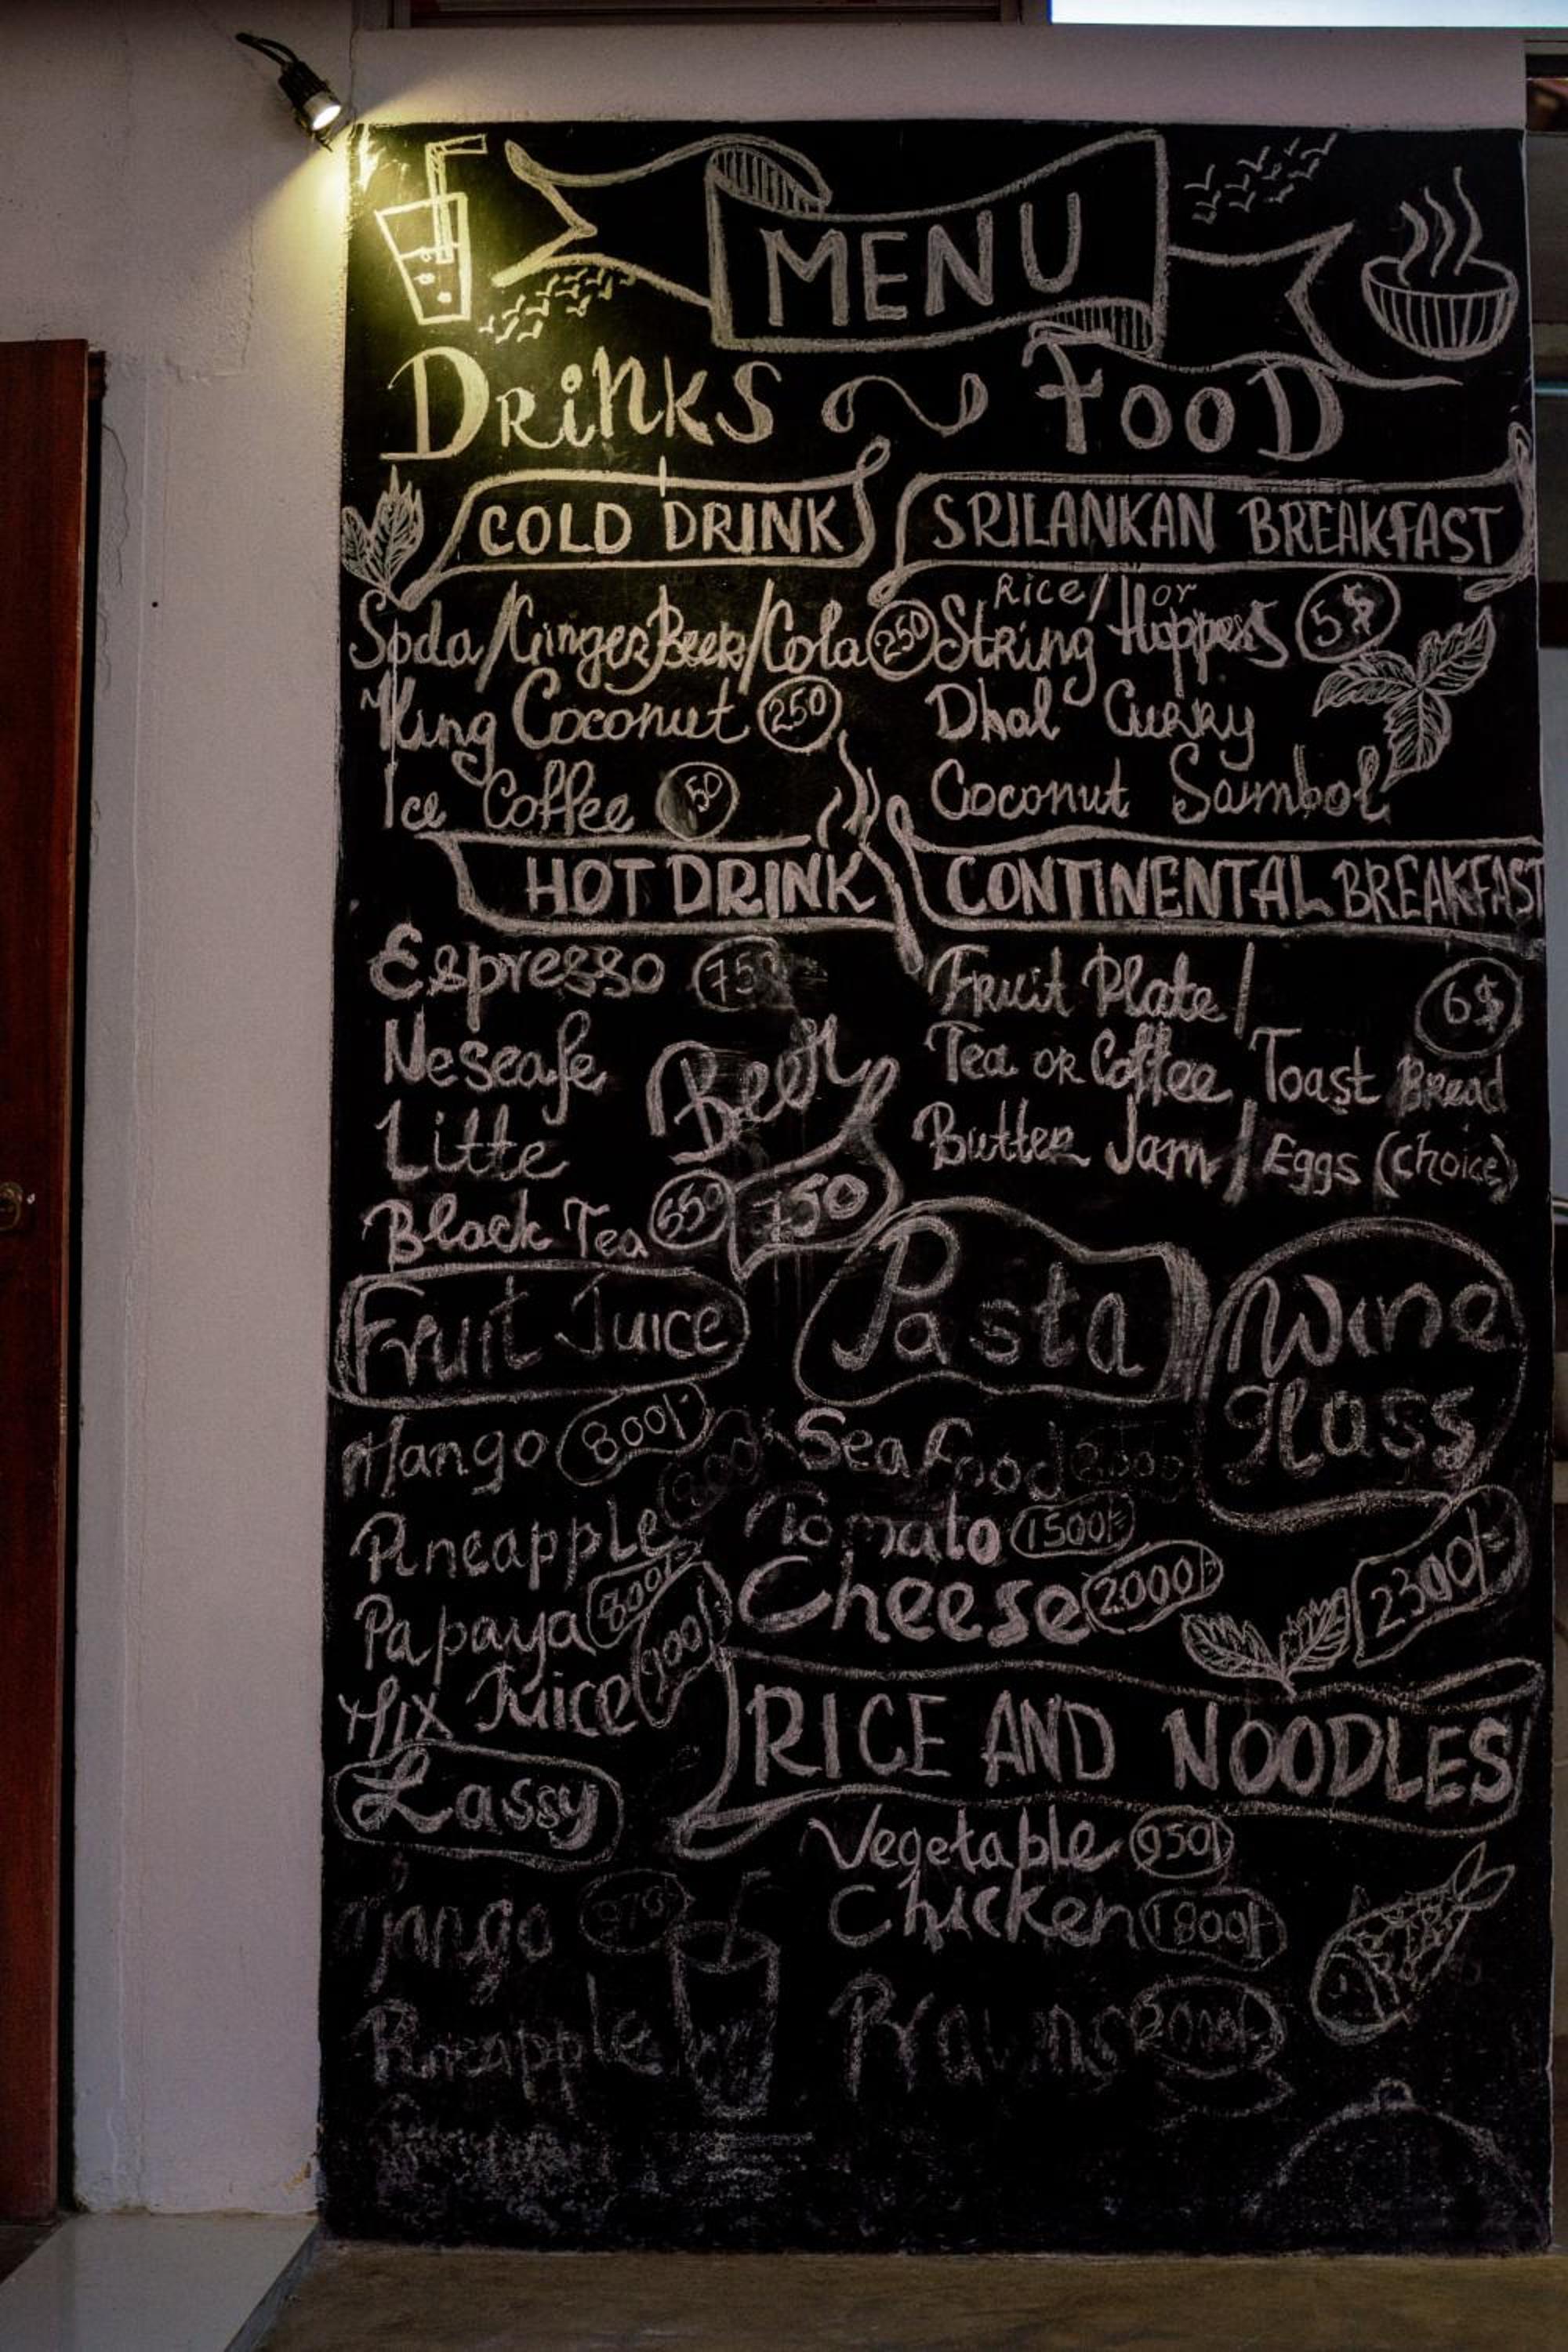 MENU
Drinks Food
COLD DRINK
Soda/Ginger Beer/Cola 250
King Coconut 250
Ice Coffee
HOT DRINK
Espresso
Nescafe
Litte
Black Tea 550
Beer
750
Fruit Juice
Mango 800/-
Pineapple
Papaya 800/-
Mix Juice 900/-
Lassy
Pineapple
SRILANKAN BREAKFAST
Rice/ or
String Hoppers 5$
Dhal Curry
Coconut Sambol
CONTINENTAL BREAKFAST
Fruit Plate/ 6$
Tea or Coffee Toast Bread
Butter Jam/Eggs (choice)
Pasta
Seafood
Tomato 1500/-
Cheese 2000/-
Wine
glass
2300/-
RICE AND NOODLES
Vegetable 950/-
Chicken 1800/-
Prawns